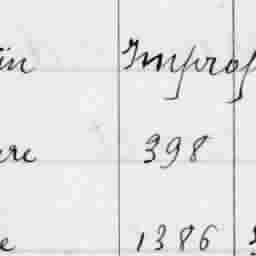 in Improp
ere 398
e 1386